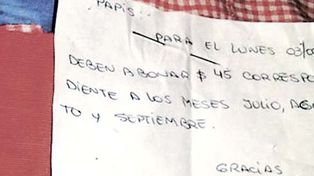 PAPIS:
PARA EL LUNES 03/0
DEBEN ABONAR $ 45 CORRESPO
DIENTE A LOS MESES JULIO, AGO
TO Y SEPTIEMBRE.
GRACIAS